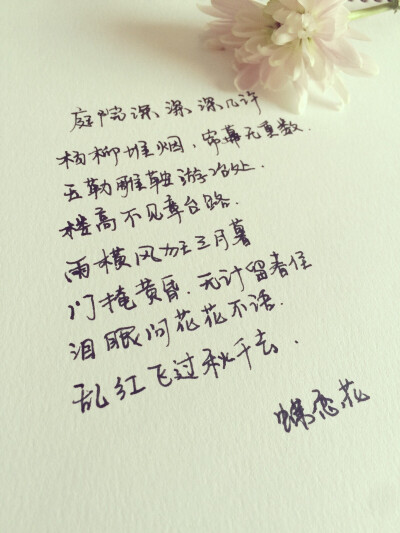 庭院深深深几许
杨柳堆烟,帘幕无重数.
玉勒雕鞍游冶处.
楼高不见章台路.
雨横风狂三月暮
门掩黄昏.无计留春住
泪眼问花花不语.
乱红飞过秋千去.
蝶恋花